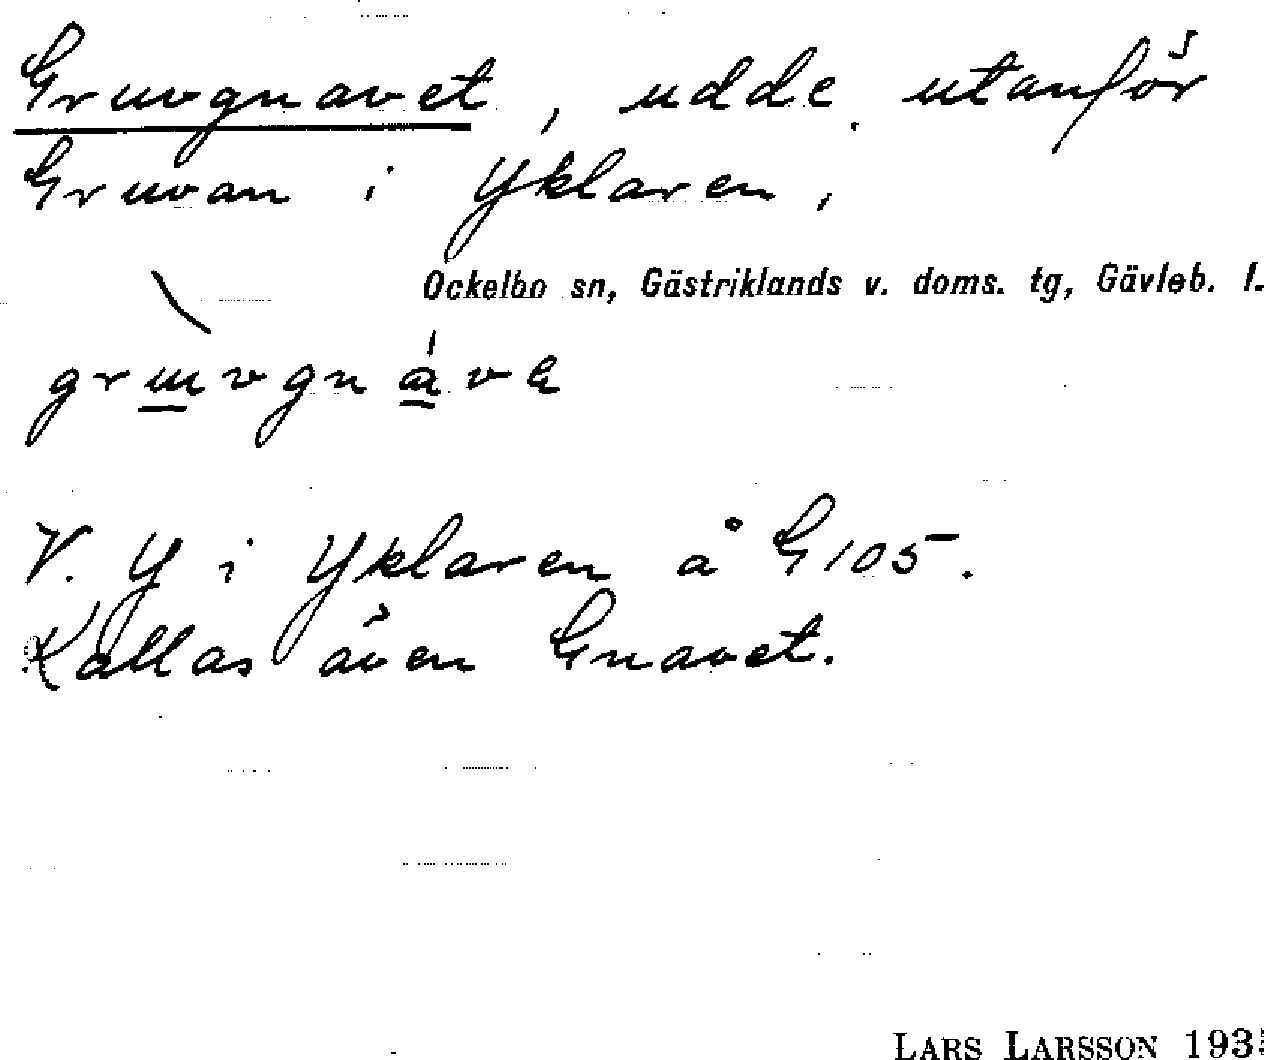 Gruvgnavet, udde utanför
Gruvan i Yklaren,
Ockelbo sn, Gästriklands v. doms. tg, Gävleb. l.
V. Y i Yklaren å G105.
Kallas även Gnavet.
LARS LARSSON